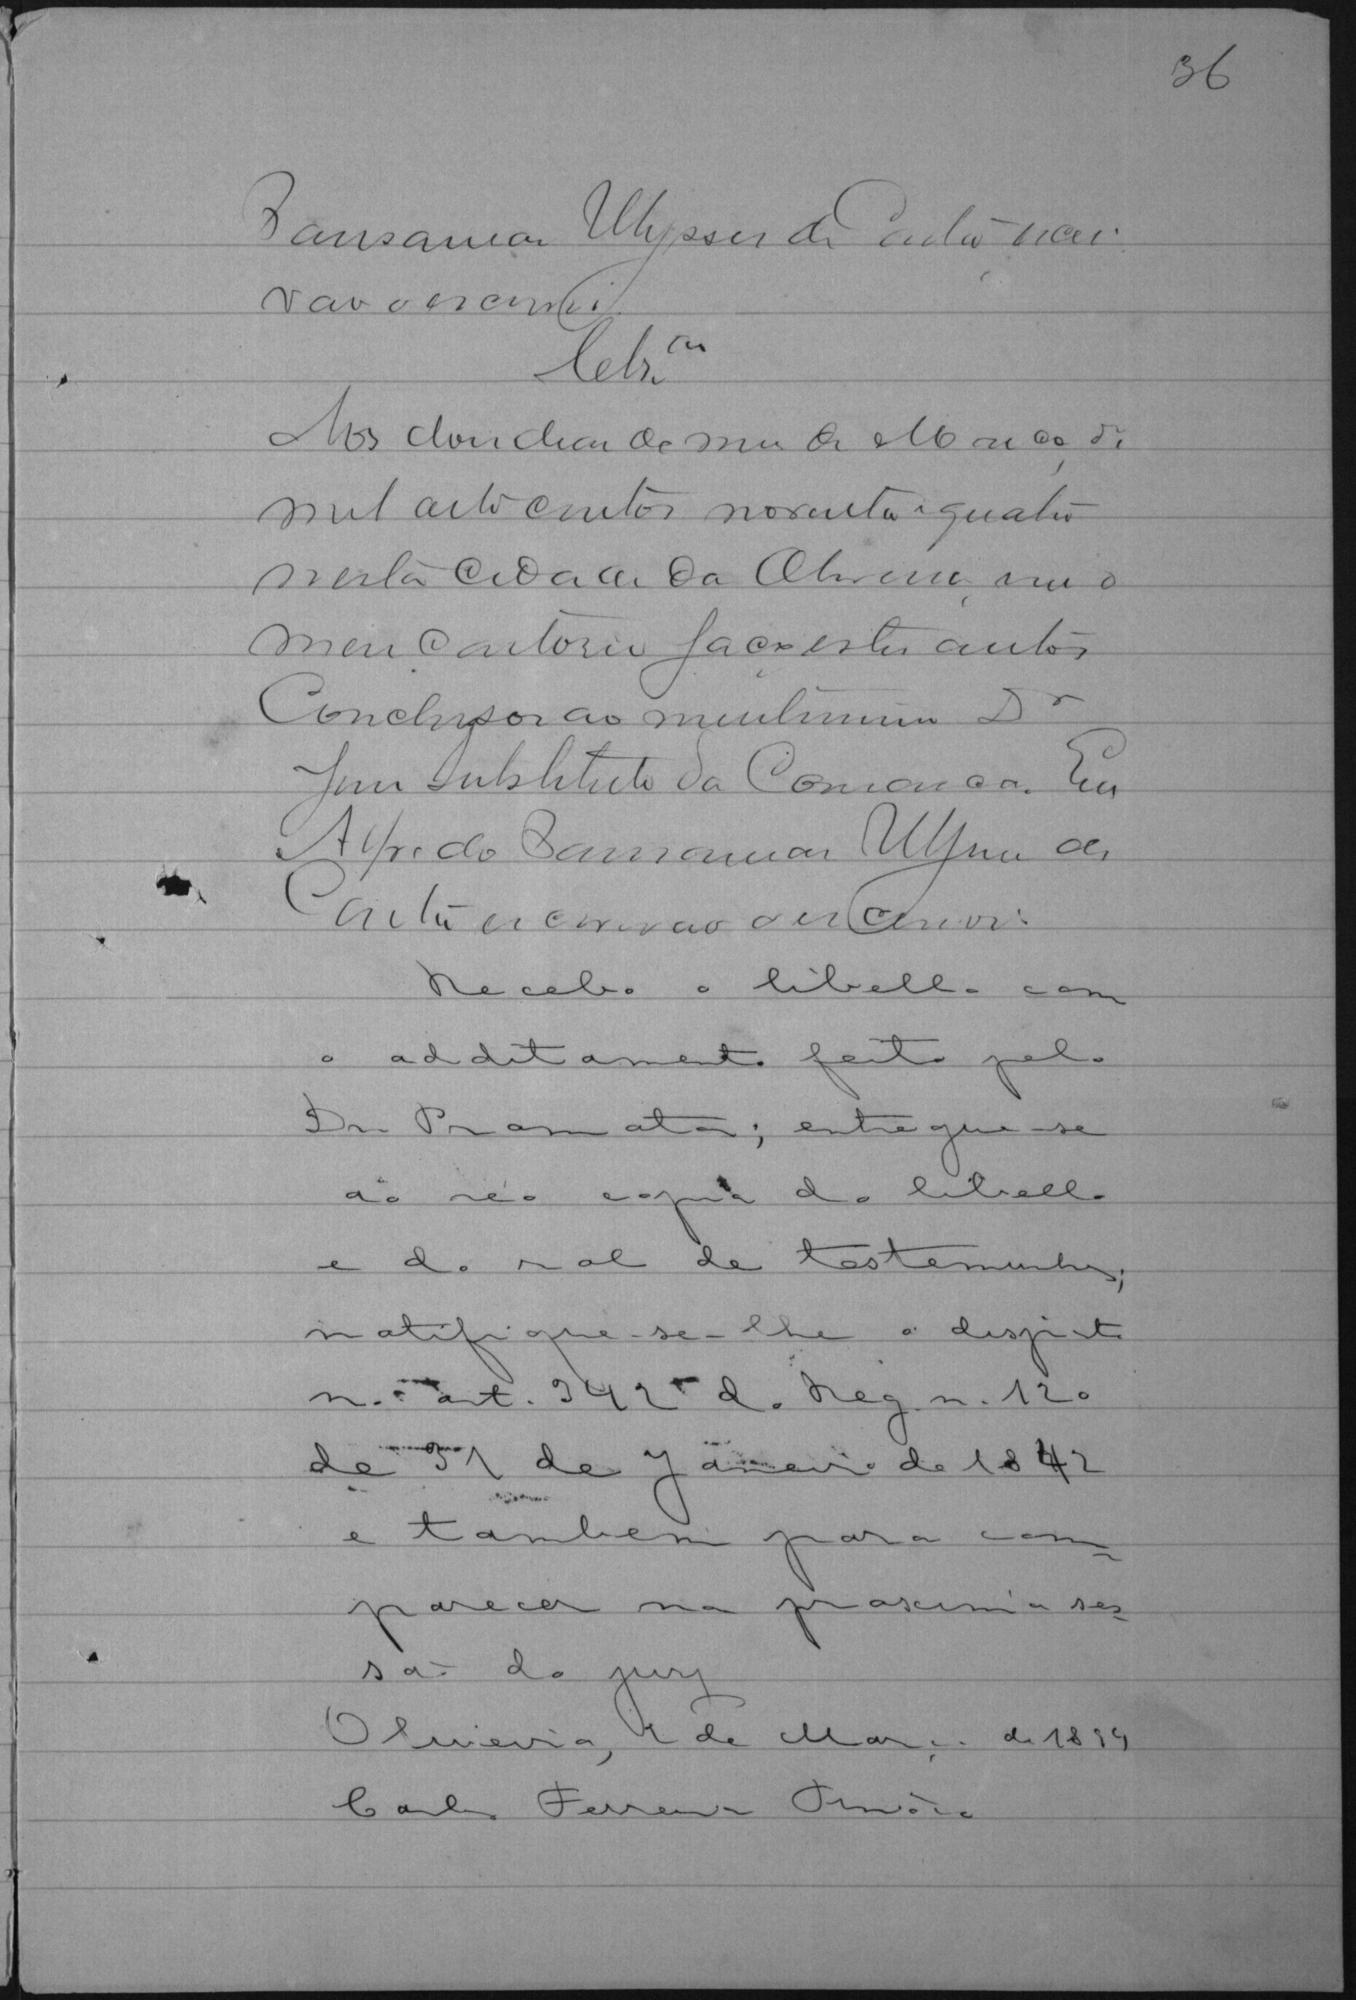 36
Ulysses de Castro escri
vão o escrevi
Cls.ão
Aos dous dias do mes de Março de
mil oito centos noventa e quatro
nesta cidade da Oliveira, em o
meu cartorio faço estes autos
Conclusos ao meritissimo Dr
Juis substituto da Comarca. Eu
Alfredo Ulysses de
Castro escrivão o escrevi.
Recebo o libello com
o additamento feito pelo
Dr Promotor; entregue-se
ao réo copia do libello
e do rol de testemunhas;
notifique-se-lhe o disposto
no art. 342 do Reg. n. 120
de 31 de Janeiro de 1842
e tambem para com-
parecer na proxima ses-
são do jury
Oliveira, 2 de Março de 1894
Carlos Ferreira